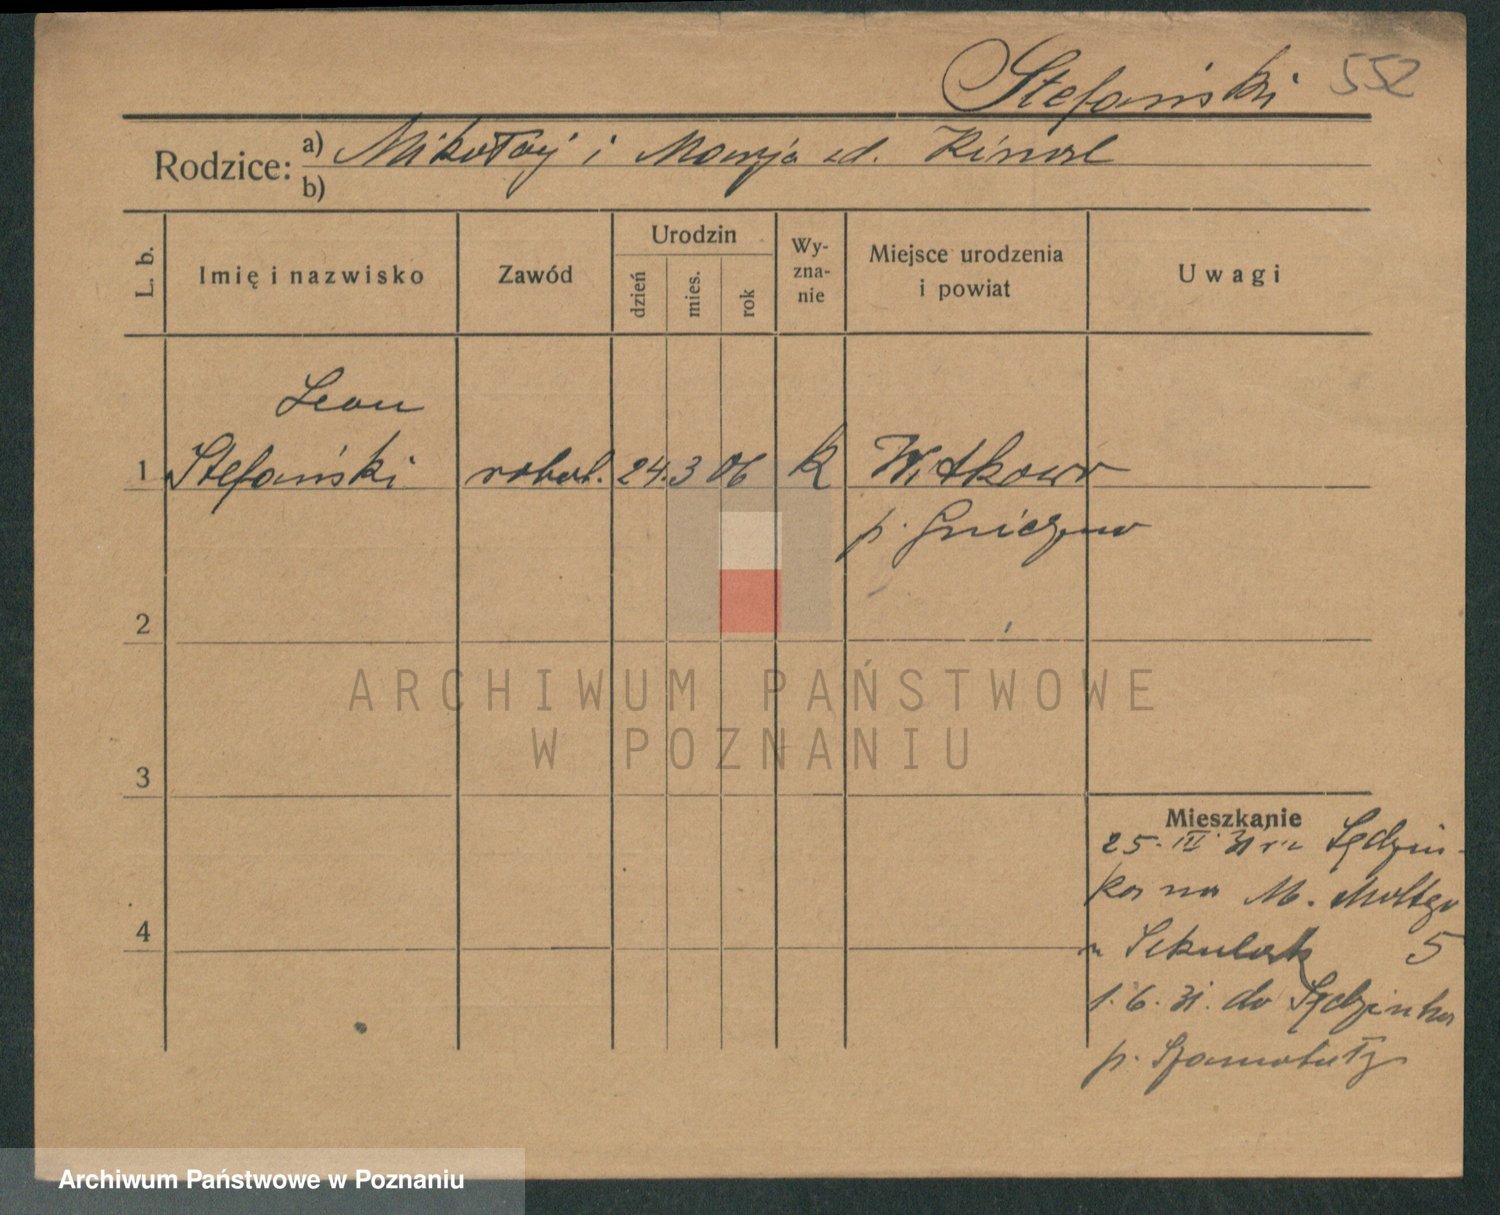 Stefański 552
Rodzice: a) Mikołaj i Marja zd.
b)
L. b.
Imię i nazwisko
Zawód
Urodzin
dzień
mies.
rok
Wy-
zna-
nie
Miejsce urodzenia
i powiat
Uwagi
Leon
1 Stefański robot. 24. 3 06 k Witkowo
p. Gniezno
2
ARCHIWUM PAŃSTWOWE
W POZNANIU
3
Mieszkanie
25. 31 Sędzin-
ka na M.
4
5
1.6.31. do Sędzinka
p. Szamotuły
Archiwum Państwowe w Poznaniu